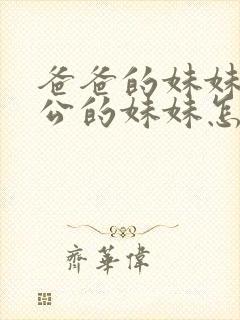 爸爸的妹妹
公的妹妹怎
齊華偉